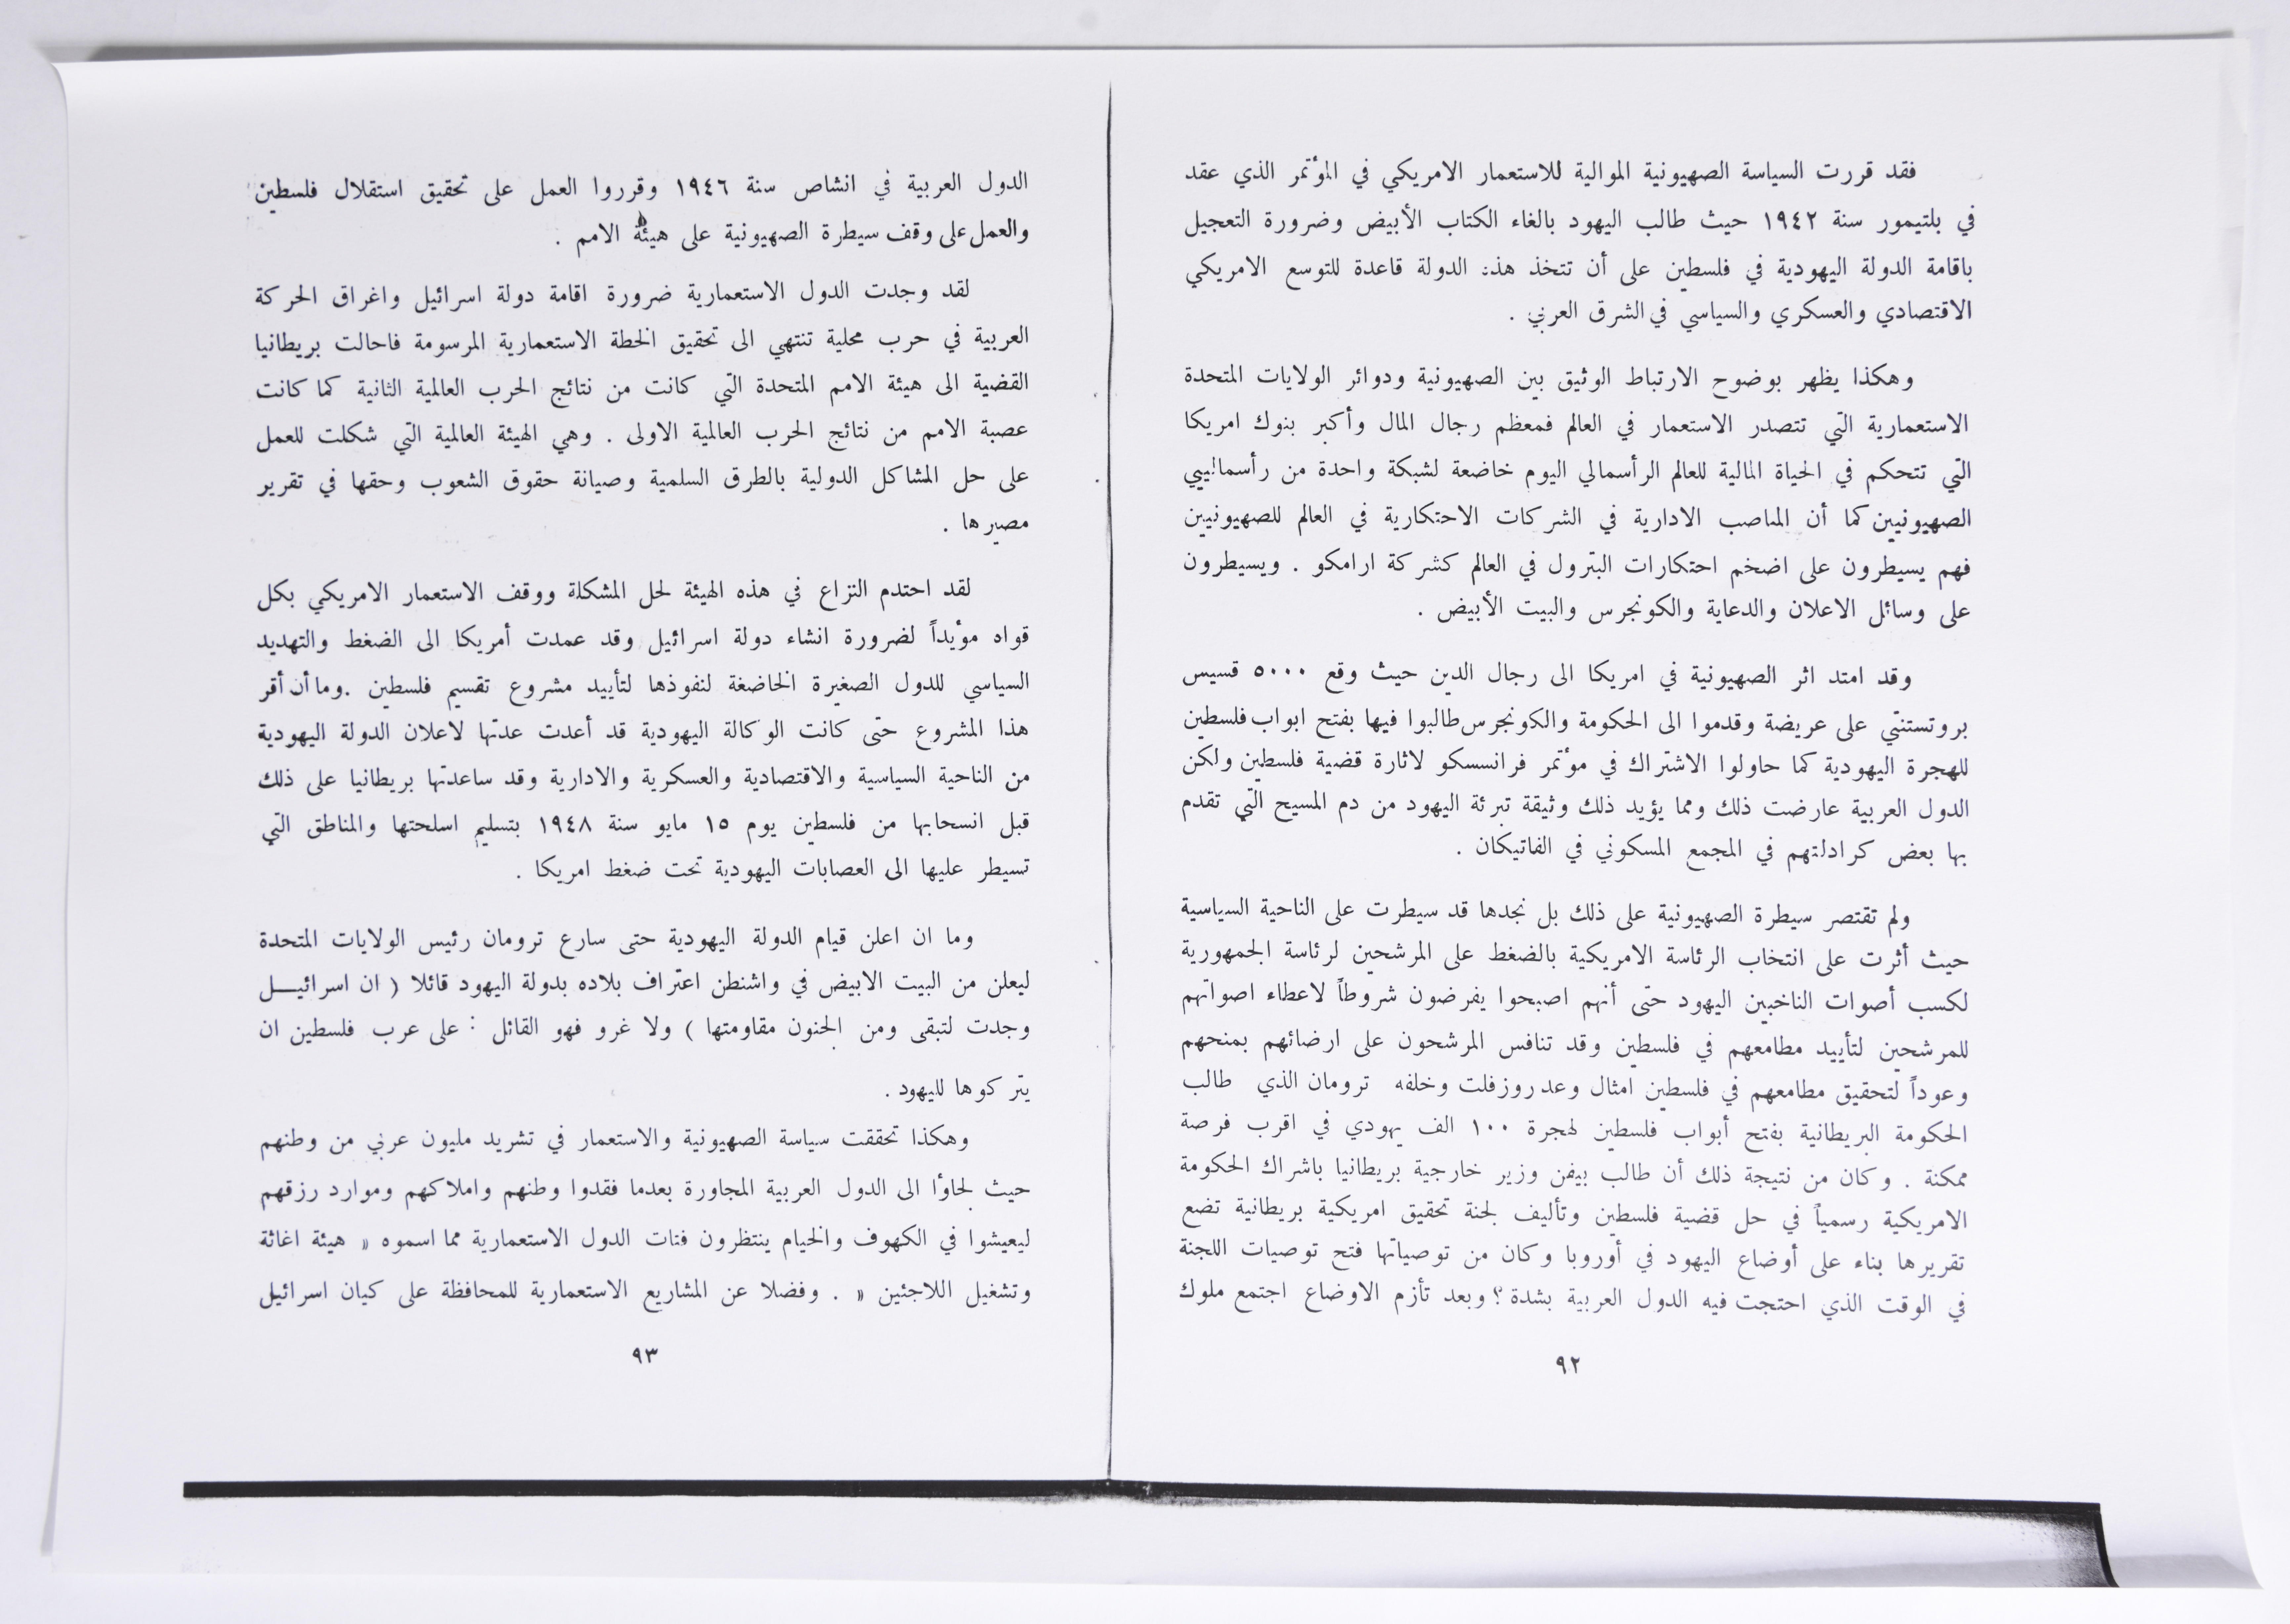 فقد قررت السياسة الصهيونية الموالية للاستعمار الامريكي في المؤتمر الذي عقد
في بلتيمور سنة ١٩٤٢ حيث طالب اليهود بالغاء الكتاب الأبيض وضرورة التعجيل
باقامة الدولة اليهودية في فلسطين على أن تتخذ هذه الدولة قاعدة للتوسع الامريكي
الاقتصادي والعسكري والسياسي في الشرق العربي .
وهكذا يظهر بوضوح الارتباط الوثيق بين الصهيونية ودوائر الولايات المتحدة
الاستعمارية التي تتصدر الاستعمار في العالم فمعظم رجال المال وأكبر بنوك امريكا
التي تتحكم في الحياة المالية للعالم الرأسمالي اليوم خاضعة لشبكة واحدة من رأسماليي
الصهيونيين كما أن المناصب الادارية في الشركات الاحتكارية في العالم للصهيونيين
فهم يسيطرون على اضخم احتكارات البترول في العالم كشركة ارامكو . ويسيطرون
على وسائل الاعلان والدعاية والكونجرس والبيت الأبيض .
وقد امتد اثر الصهيونية في امريكا الى رجال الدين حيث وقع ٥٠٠٠ قسيس
بروتستنتي على عريضة وقدموا الى الحكومة والكونجرس طالبوا فيها بفتح ابواب فلسطين
للهجرة اليهودية كما حاولوا الاشتراك في مؤتمر فرانسسكو لاثارة قضية فلسطين ولكن
الدول العربية عارضت ذلك ومما يؤيد ذلك وثيقة تبرئة اليهود من دم المسيح التي تقدم
بها بعض كرادلتهم في المجمع المسكوني في الفاتيكان .
ولم تقتصر سيطرة الصهيونية على ذلك بل نجدها قد سيطرت على الناحية السياسية
حيث أثرت على انتخاب الرئاسة الامريكية بالضغط على المرشحين لرئاسة الجمهورية
لكسب أصوات الناخبين اليهود حتى أنهم اصبحوا يفرضون شروطاً لاعطاء اصواتهم
للمرشحين لتأييد مطامعهم في فلسطين وقد تنافس المرشحون على ارضائهم بمنحهم
وعوداً لتحقيق مطامعهم في فلسطين امثال وعد روزفلت وخلفه ترومان الذي طالب
الحكومة البريطانية بفتح أبواب فلسطين لهجرة ١٠٠ الف يهودي في اقرب فرصة
ممكنة . وكان من نتيجة ذلك أن طالب بيفن وزير خارجية بريطانيا باشراك الحكومة
الامريكية رسمياً في حل قضية فلسطين وتأليف لجنة تحقيق امريكية بريطانية تضع
تقريرها بناء على أوضاع اليهود في أوروبا وكان من توصياتها فتح توصيات اللجنة
في الوقت الذي احتجت فيه الدول العربية بشدة ؟ وبعد تأزم الاوضاع اجتمع ملوك
٩٢
الدول العربية في انشاص سنة ١٩٤٦ وقرروا العمل على تحقيق استقلال فلسطين
والعمل على وقف سيطرة الصهيونية على هيئة الامم .
لقد وجدت الدول الاستعمارية ضرورة اقامة دولة اسرائيل واغراق الحركة
العربية في حرب محلية تنتهي الى تحقيق الخطة الاستعمارية المرسومة فاحالت بريطانيا
القضية الى هيئة الامم المتحدة التي كانت من نتائج الحرب العالمية الثانية كما كانت
عصبة الامم من نتائج الحرب العالمية الاولى . وهي الهيئة العالمية التي شكلت للعمل
على حل المشاكل الدولية بالطرق السلمية وصيانة حقوق الشعوب وحقها في تقرير
مصيرها .
لقد احتدم النزاع في هذه الهيئة لحل المشكلة ووقف الاستعمار الامريكي بكل
قواه مؤيداً لضرورة انشاء دولة اسرائيل وقد عمدت أمريكا الى الضغط والتهديد
السياسي للدول الصغيرة الخاضعة لنفوذها لتأييد مشروع تقسيم فلسطين . وما أن أقر
هذا المشروع حتى كانت الوكالة اليهودية قد أعدت عدتها لاعلان الدولة اليهودية
من الناحية السياسية والاقتصادية والعسكرية والادارية وقد ساعدتها بريطانيا على ذلك
قبل انسحابها من فلسطين يوم ١٥ مايو سنة ١٩٤٨ بتسليم اسلحتها والمناطق التي
تسيطر عليها الى العصابات اليهودية تحت ضغط امريكا .
وما ان اعلن قيام الدولة اليهودية حتى سارع ترومان رئيس الولايات المتحدة
ليعلن من البيت الابيض في واشنطن اعتراف بلاده بدولة اليهود قائلا ( ان اسرائيـــل
وجدت لتبقى ومن الجنون مقاومتها ) ولا غرو فهو القائل : على عرب فلسطين ان
يتركوها لليهود .
وهكذا تحققت سياسة الصهيونية والاستعمار في تشريد مليون عربي من وطنهم
حيث لجاؤا الى الدول العربية المجاورة بعدما فقدوا وطنهم واملاكهم وموارد رزقهم
ليعيشوا في الكهوف والخيام ينتظرون فتات الدول الاستعمارية مما اسموه « هيئة اغاثة
وتشغيل اللاجئين » . وفضلا عن المشاريع الاستعمارية للمحافظة على كيان اسرائيل
٩٣